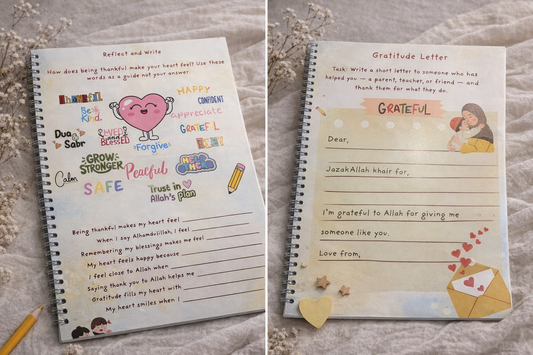 Reflect and Write
How does being thankful make your heart feel? Use these
words as a guide not your answer
Thankful
HAPPY
Be Kind
CONFIDENT
appreciate
Dua
Sabr
BLESSED
GRATEFUL
Forgive
GROW
STRONGER
Peaceful
Calm
SAFE
Trust in
Allah's plan
Being thankful makes my heart feel
When I say Alhamdulillah, I feel
Remembering my blessings makes me feel
My heart feels happy because
I feel close to Allah when
Saying thank you to Allah helps me
Gratitude fills my heart with
My heart smiles when I
Gratitude Letter
Task: Write a short letter to someone who has
helped you — a parent, teacher, or friend — and
thank them for what they do.
GRATEFUL
Dear,
JazakAllah khair for,
I'm grateful to Allah for giving me
someone like you.
Love from,